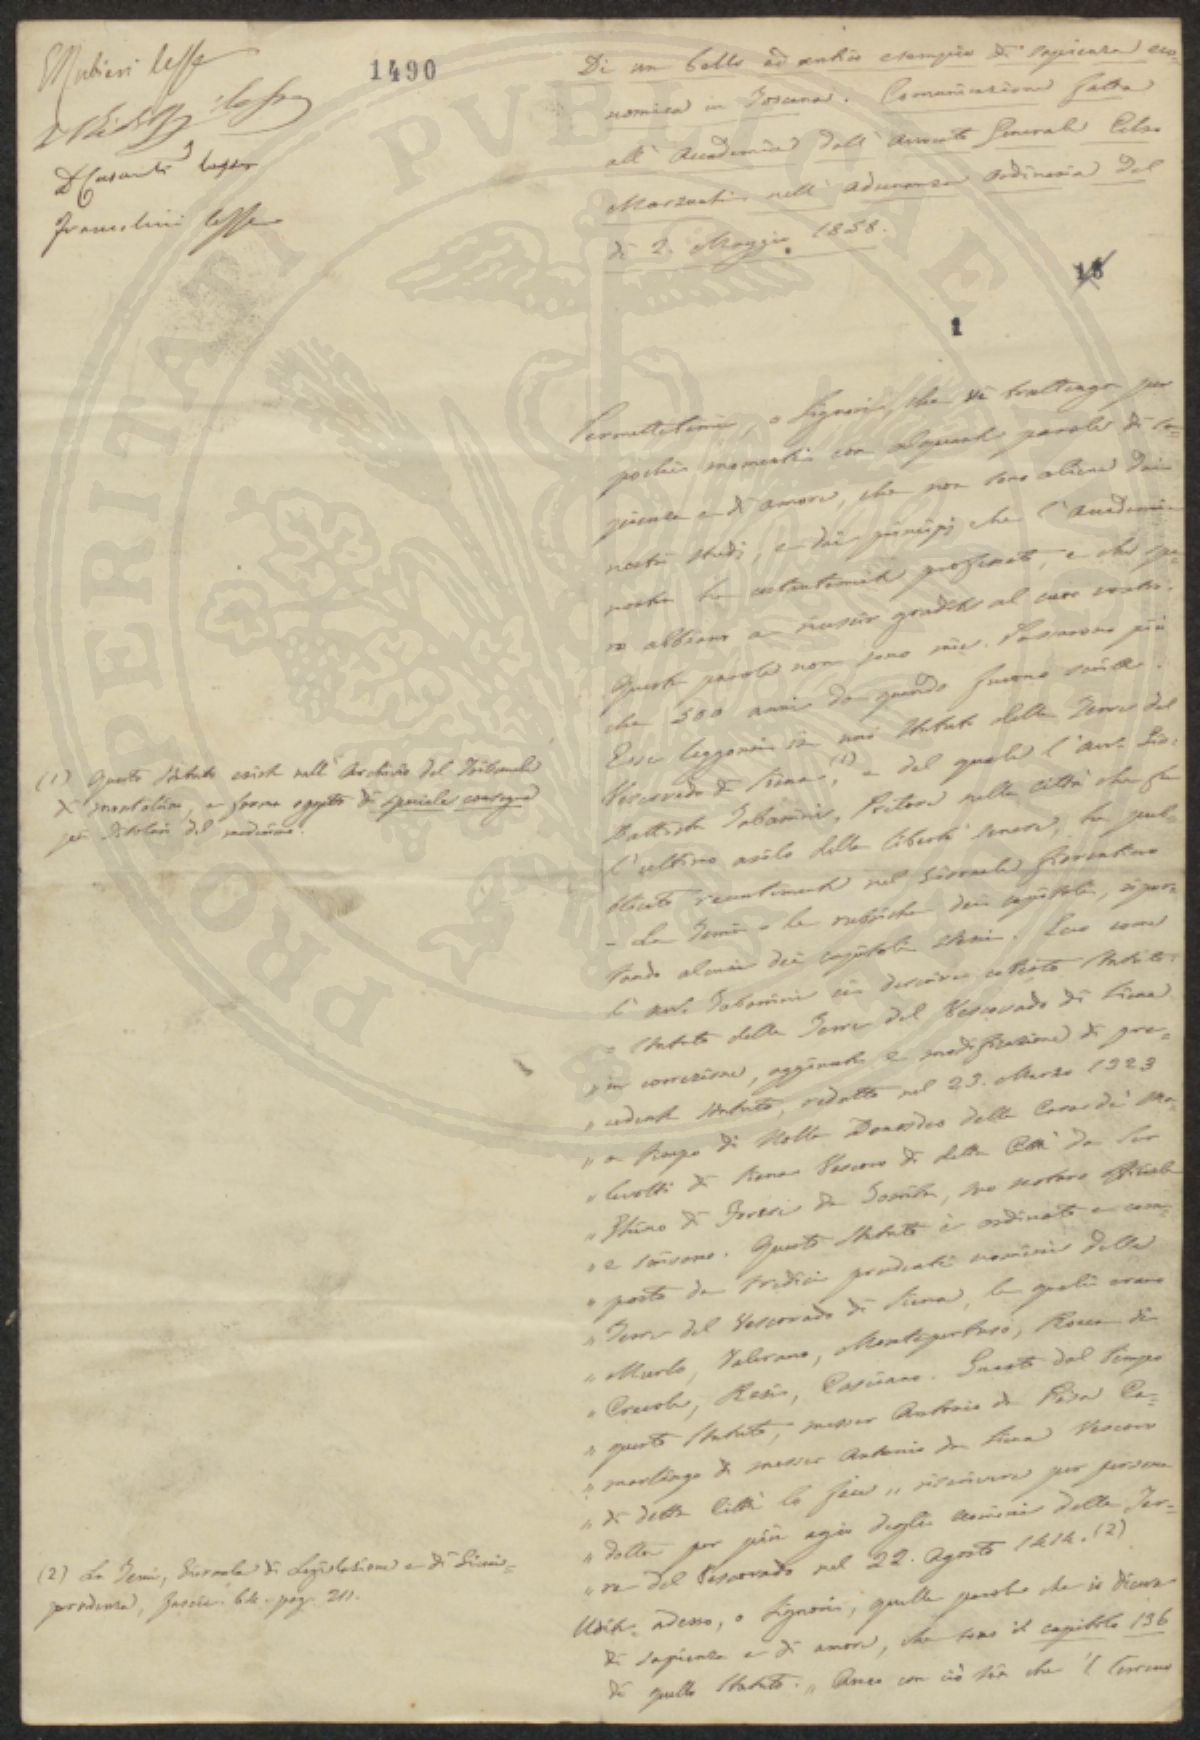 Rubieri lesse
1490
D. Casanti lesse
Francolini lesse
Di un bello ed antico esempio di sapienza eco-
nomica in Toscana. Comunicazione fatta
all'Accademia dall'Avvocato Generale Celso
Marzucchi nell'adunanza ordinaria del
dì 2. Maggio 1858.
18
1
Permettetemi, o Signori, che vi trattenga per
pochi momenti con alquante parole di sa-
pienza e di amore, che non sono aliene dai
nostri studi, e dai principj che l'Accademia
nostra ha costantemente professati, e che spe-
ro abbiano a riuscir gradite al cuor vostro.
Queste parole non sono mie. Passarono più
che 500 anni da quando furono scritte.
Esse leggonsi in uno Statuto delle Terre del
Vescovado di Siena, (1) e del quale l'Avv. Gio:
Battista Tabarrini, Pretore nella città che fu
l'ultimo asilo della libertà senese, ha pub-
blicato recentemente nel Giornale fiorentino
- La Temi - le rubriche dei capitoli, ripor-
tando alcuni dei capitoli stessi. Ecco come
l'Avv. Tabarrini ci descrive cotesto Statuto:
" Statuto delle Terre del Vescovado di Siena
" in correzione, aggiunta e modificazione di pre-
" cedente Statuto, redatto nel 23. Marzo 1323
" a tempo di Messer Donusdeo della Casa dei Ma-
" lavolti di Siena Vescovo di detta Città da Ser
" di da suo notaro officiale
" e Questo Statuto è ordinato e com-
" posto da tredici prudenti uomini delle
" Terre del Vescovado di Siena, le quali erano
" Murlo, Vallerano, Montepertuso, Rocca di
" Crevole, Resi, Casciano. Guasto dal tempo
" questo Statuto, messer Antonio da Pisa Ca-
" marlingo di messer Antonio da Siena Vescovo
" di detta Città lo fece " riscrivere per persona
" dotta per più agio degli uomini delle Ter-
" re del Vescovado nel 22. Agosto 1414. (2)
Udite adesso, o Signori, quelle parole che io diceva
di sapienza e di amore, che sono il capitolo 136
di quello Statuto. " Anco con ciò sia che 'l terreno
(1) Questo Statuto esiste nell'Archivio del Tribunale
di Montalcino, e forma oggetto di speciale consegna
pei Titolari del medesimo.
(2) La Temi, Giornale di Legislazione e di Giuris-
prudenza, fascic. 64. pag. 211.